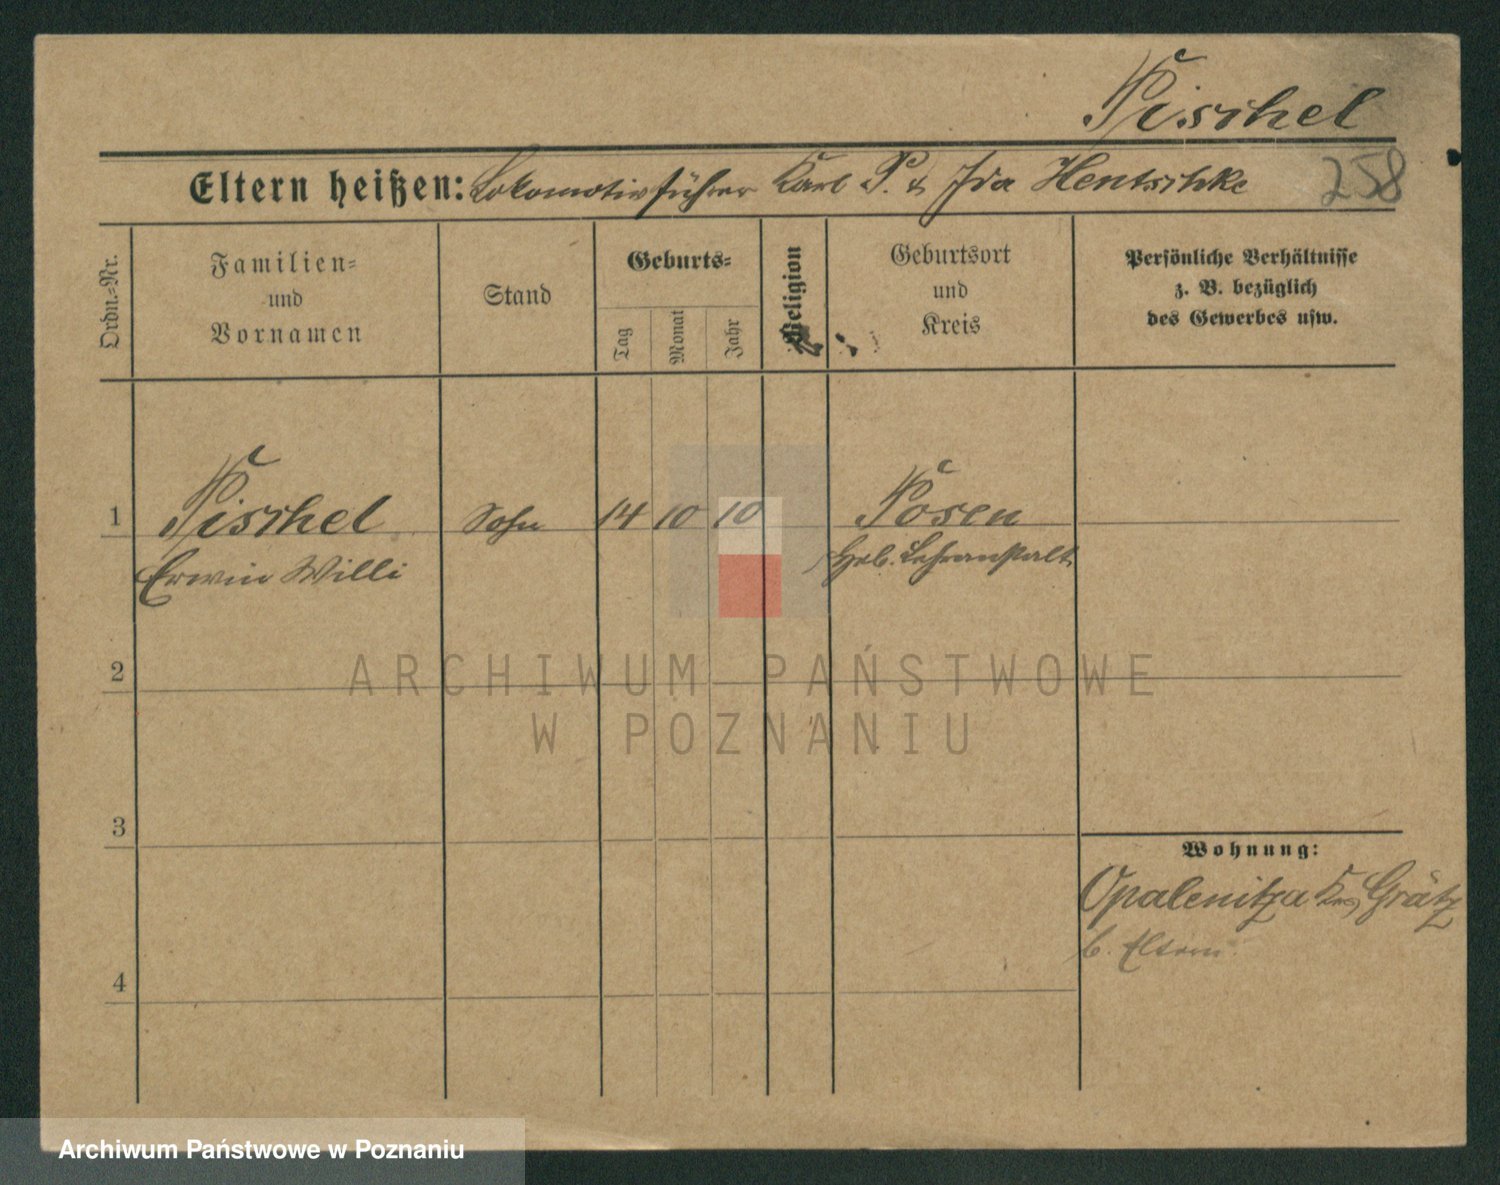 Pischel
Eltern heißen: Lokomotivführer Karl P. & Ida Hentschke
258
Ordn.-Nr.
Familien-
und
Vornamen
Stand
Geburts-
Tag
Monat
Jahr
Religion
Geburtsort
und
Kreis
Persönliche Verhältnisse
z. B. bezüglich
des Gewerbes usw.
1 Pischel Sohn 14 10 10 Posen
Erwin Willi Heb. Lehranstalt
2
ARCHIWUM PAŃSTWOWE
W POZNANIU
3
Wohnung:
Opalenitza Krs. Grätz
b. Eltern
4
Archiwum Państwowe w Poznaniu